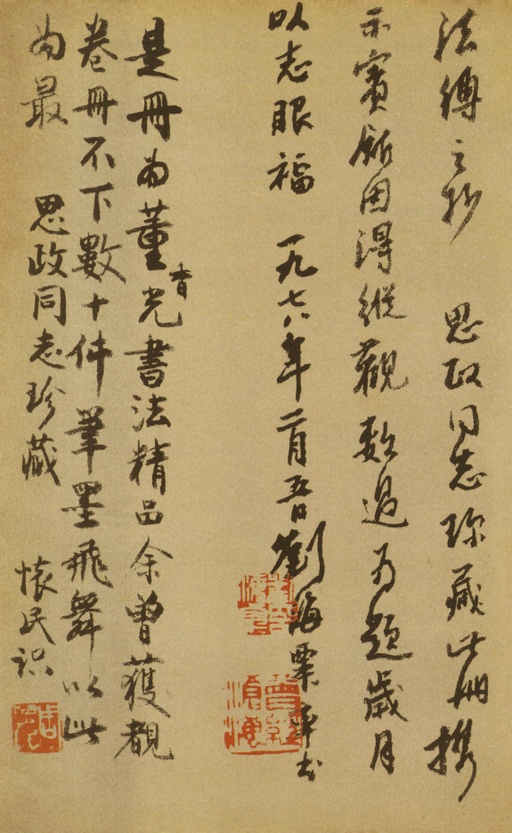 法傅之抄 思政同志珍藏此册携
示賓館因得縱觀數過爲題歲月
以志眼福 一九七八年二月五日劉海粟年
是冊為董香光書法精品余曾獲觀
卷冊不下數十件筆墨飛舞以此
為最 思政同志珍藏 懷民識